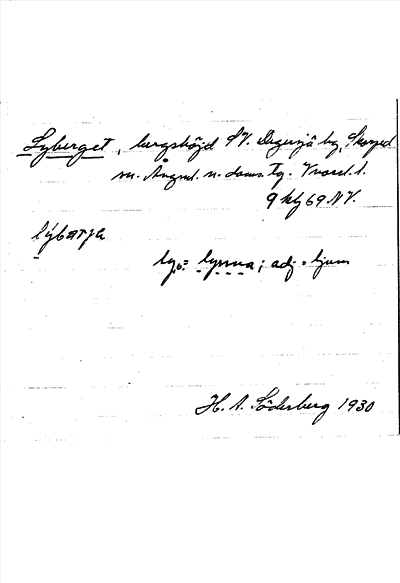 Lyberget, bergshöjd SV. Degersjö by, Skorped
sn. Ångml. n. doms. tg. Vrard. 1.
9 kbg 69 NV.
lýbærja
ly v. = lyssna; adj = ljum
H. A. Söderberg 1930